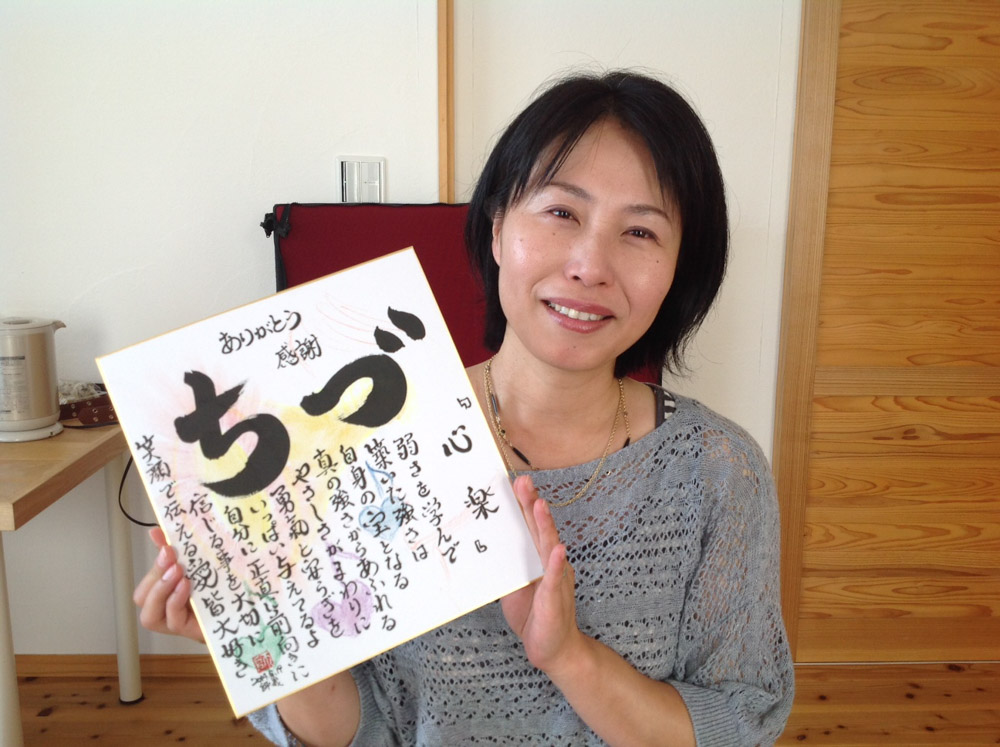 ありがとう
感謝
ちづ
心 楽
弱さを学んで
築いた強さは
自身の宝となる
真の強さからあふれる
やさしさがまわりに
勇氣と安らぎを
いっぱい与えてるよ
自分に正直に前向きに
信じる事を大切に
笑顔で伝える愛皆大好き